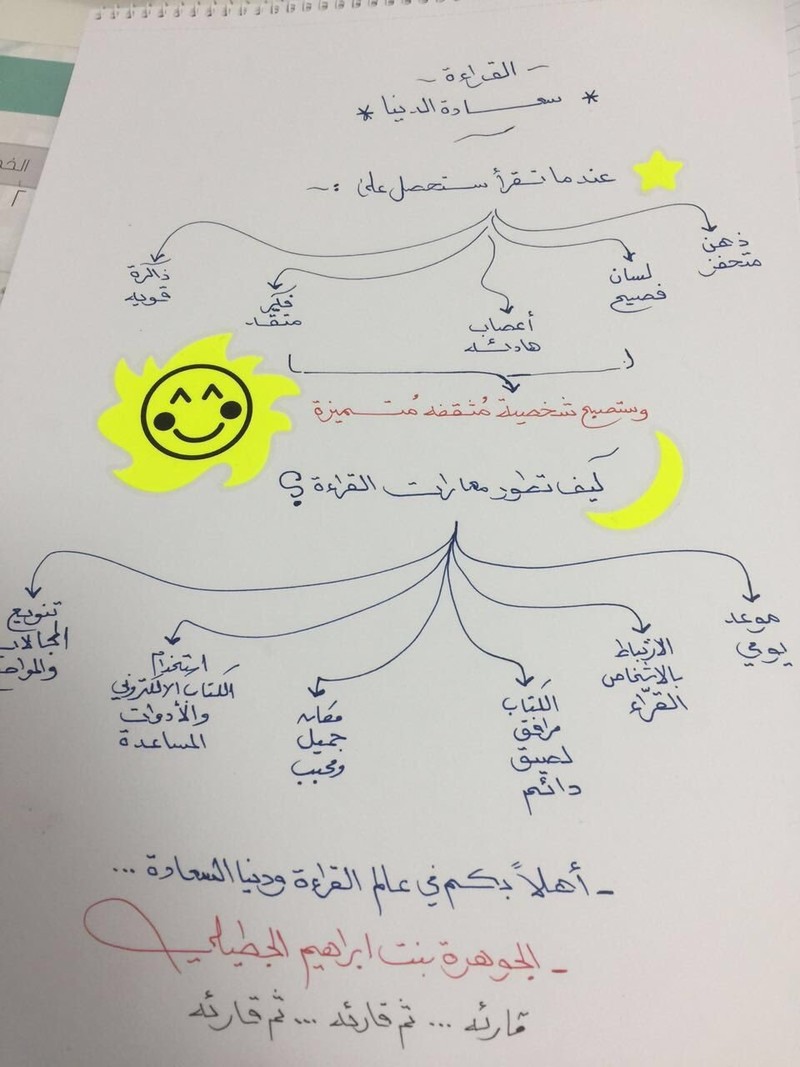 ~ القراءة ~
* سعادة الدنيا *
عندما تقرأ ستحصل على :~
ذهن
متحفز
لسان
فصيح
أعصاب
هادئه
فكر
متقد
ذاكرة
قويه
وستصبح شخصية مُثقفه مُتميزة
كيف تطور مهارات القراءة ؟
موعد
يومي
الارتباط
بالاشخاص
القرّاء
الكتاب
مرافق
لصيق
دائم
مكان
جميل
ومحبب
استخدام
الكتاب الالكتروني
والأدوات
المساعدة
تنويع
المجالات
- أهلاً بكم في عالم القراءة ودنيا السعادة ...
- الجوهرة بنت ابراهيم الجطيلي
قارئه ... ثم قارئه ... ثم قارئه
٢